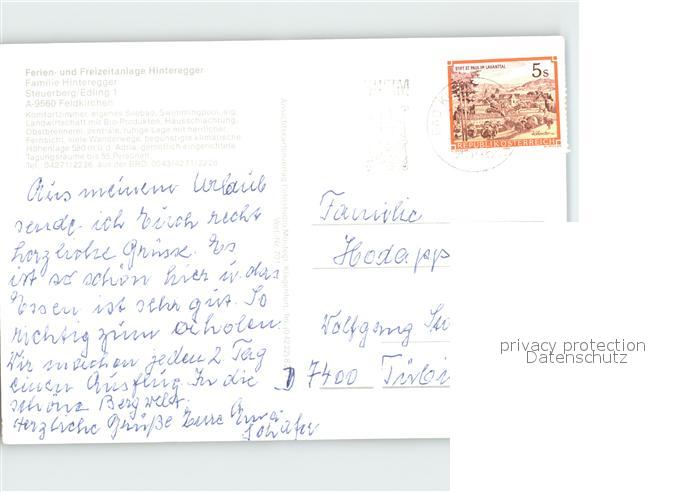 Ferien- und Freizeitanlage Hinteregger
Familie Hinteregger
Steuerberg/Edling 1
A-9560 Feldkirchen
Komfortzimmer, eigenes Seebad, Swimmingpool, eig.
Landwirtschaft mit Bio-Produkten, Hausschlachtung,
Obstbrennerei, zentrale, ruhige Lage mit herrlicher
Fernsicht, viele Wanderwege, begünstigte klimatische
Höhenlage 520 m ü. d. Adria, gemütlich eingerichtete
Tagungsräume bis 55 Personen.
Tel. 04271/2226, aus der BRD: 0043/4271/2226
Aus meinem Urlaub
sende ich Euch recht
herzliche Grüsse. Es
ist so schön hier u. das
Essen ist sehr gut. So
richtig zum erholen.
Wir machen jeden 2. Tag
einen Ausflug In die
schöne Bergwelt.
Herzliche Grüße Eure
Schäfer
STIFT ST. PAUL IM LAVANTTAL
5s
REPUBLIK ÖSTERREICH
Familie
Hodapp
Wolfgang
D 7400 Tübi
privacy protection
Datenschutz